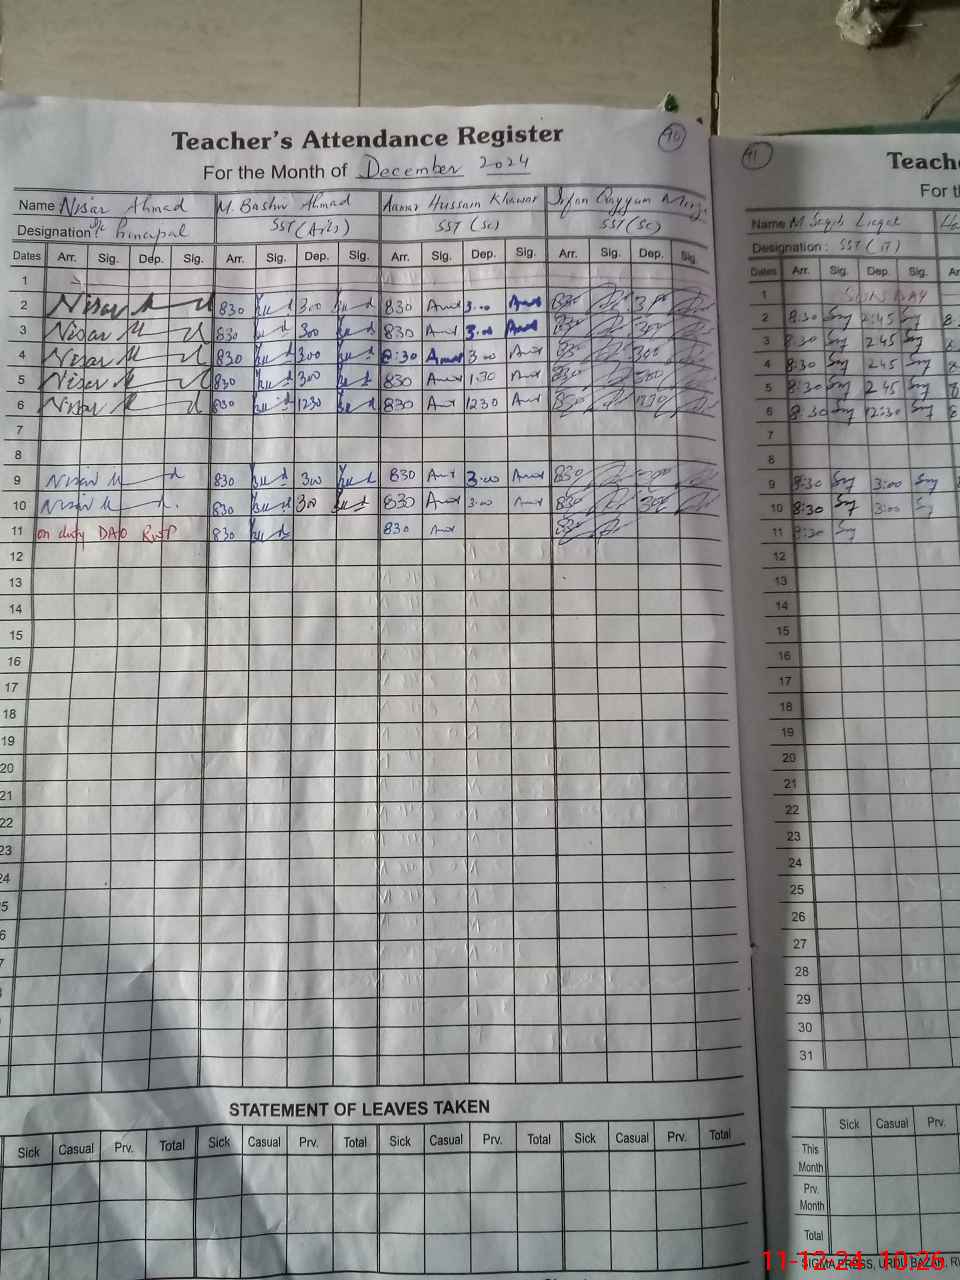 Teacher's Attendance Register
40
For the Month of December 2024
Name Nisar Ahmad M. Bashir Ahmad Aamar Hussain Khawar Irfan Qayyum
Designation: Principal SST (Arts) SST (Sc) SST (SC)
Dates Arr. Sig. Dep. Sig. Arr. Sig. Dep. Sig. Arr. Sig. Dep. Sig. Arr. Sig. Dep. Sig.
1
2 Nisar 830 300 830 3:00 830
3 Nisar 830 300 830 3:00 830 300
4 Nisar 830 300 8:30 300 830 300
5 Nisar 830 300 830 1:30 830 300
6 Nisar 830 1230 830 1230 830 1230
7
8
9 Nisar 830 300 830 3:00 830
10 Nisar 830 300 830 3:00 830 300
11 on duty DAO RWP 830 830 830
12
13
14
15
16
17
18
19
20
21
22
23
24
5
6
7
STATEMENT OF LEAVES TAKEN
Sick Casual Prv. Total Sick Casual Prv. Total Sick Casual Prv. Total Sick Casual Prv. Total
41
Teach
For t
Name M. Saqib Liaqat
Designation: SST (IT)
Dates Arr. Sig. Dep. Sig. Ar
1 SUNDAY
2 8:30 2:45
3 8:30 2:45
4 8:30 2:45
5 8:30 2:45
6 8:30 12:30
7
8
9 8:30 3:00
10 8:30 3:00
11 8:30
12
13
14
15
16
17
18
19
20
21
22
23
24
25
26
27
28
29
30
31
Sick Casual Prv.
This Month
Prv. Month
Total
SIGMA PRESS, URDU BAZAR, R
11-12-24 10:26